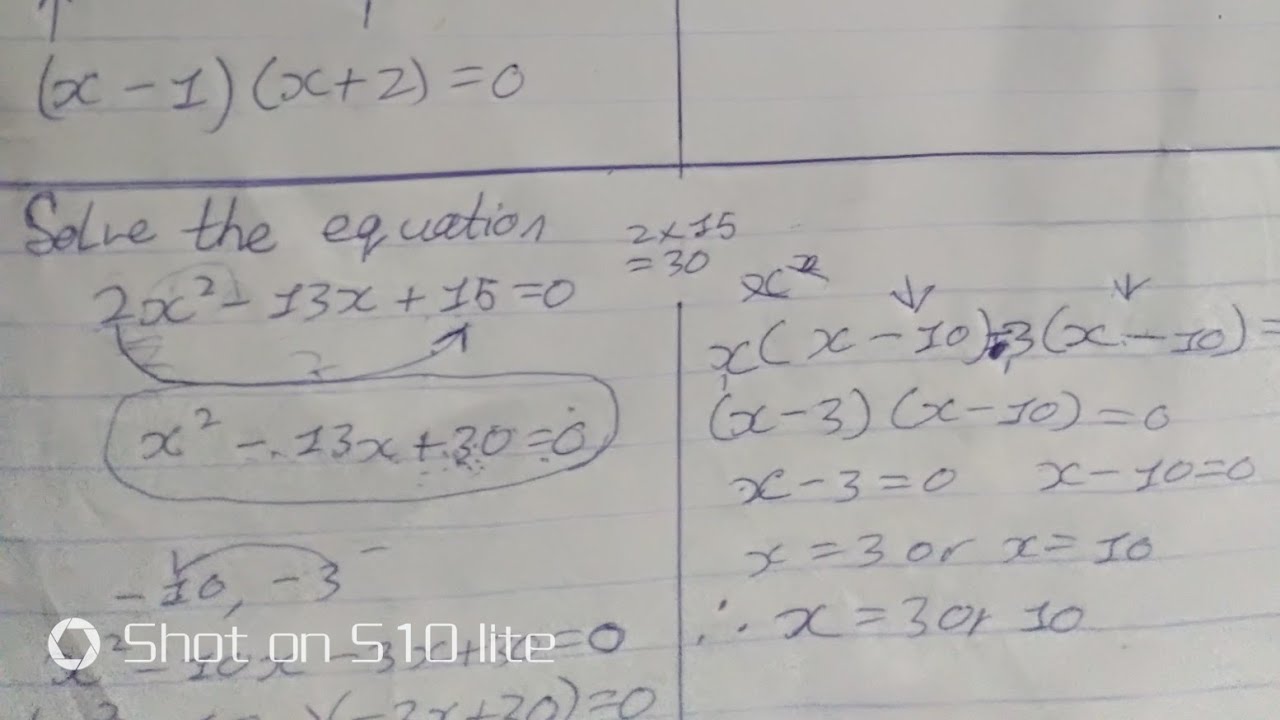 (x - 1) (x + 2) = 0
Solve the equation
2 x 15
= 30
2x² - 13x + 15 = 0
x² - 13x + 30 = 0
- 10, - 3
x² - 10x - 3x + 30 = 0
(-3x + 30) = 0
x(x - 10) - 3(x - 10) =
(x - 3) (x - 10) = 0
x - 3 = 0 x - 10 = 0
x = 3 or x = 10
∴ x = 3 or 10
Shot on S10 lite